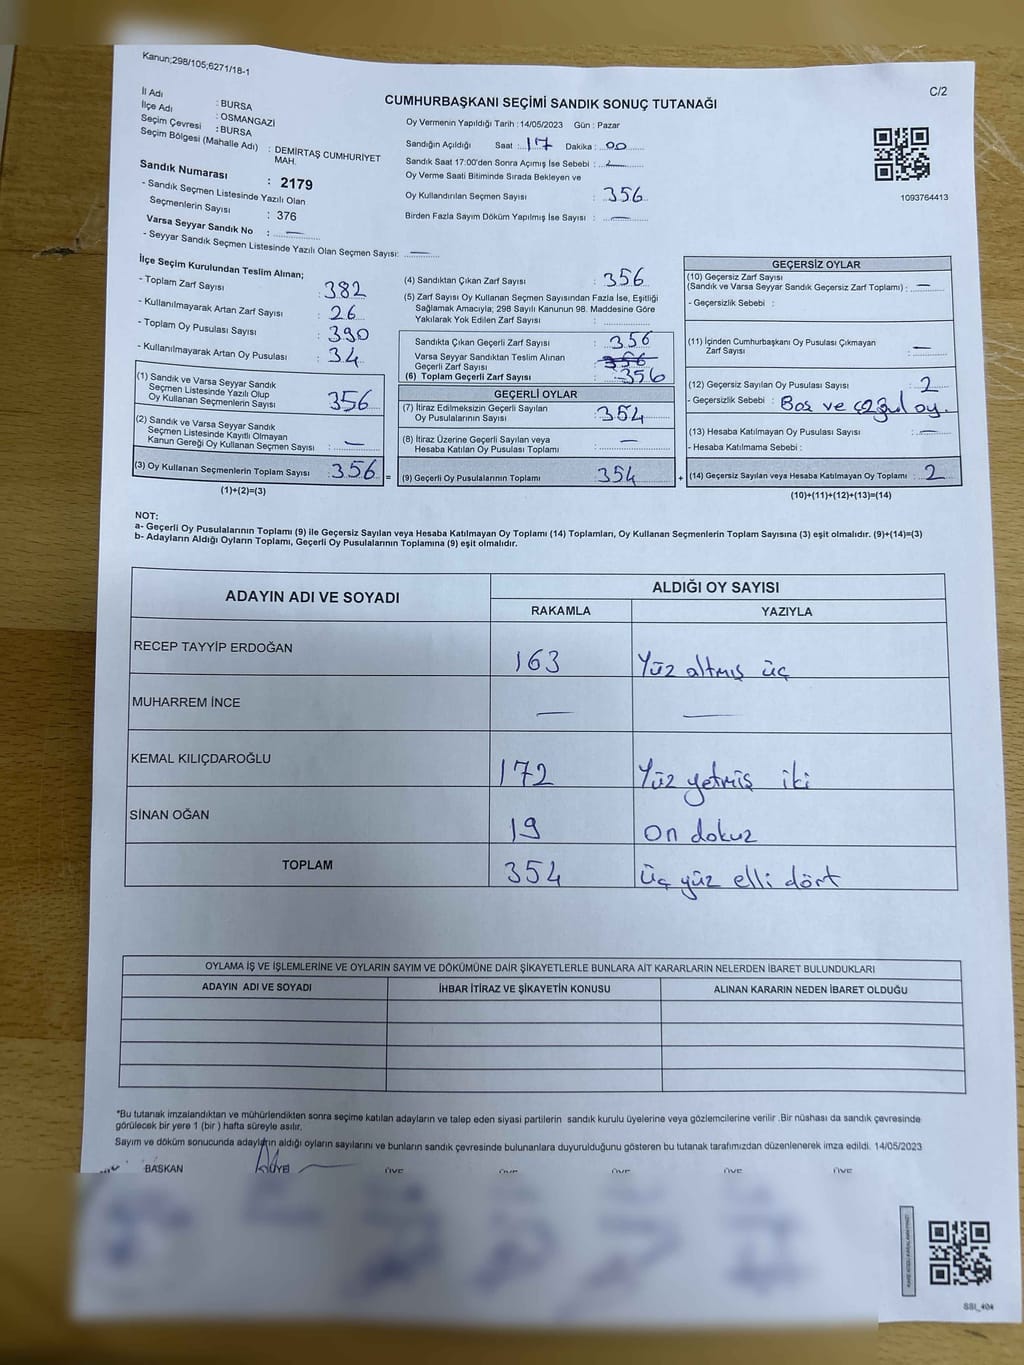 Kanun;298/105;6271/18-1
C/2
CUMHURBAŞKANI SEÇİMİ SANDIK SONUÇ TUTANAĞI
İl Adı : BURSA
İlçe Adı : OSMANGAZİ
Seçim Çevresi : BURSA
Seçim Bölgesi (Mahalle Adı) : DEMİRTAŞ CUMHURİYET
MAH.
Sandık Numarası : 2179
- Sandık Seçmen Listesinde Yazılı Olan
Seçmenlerin Sayısı : 376
Varsa Seyyar Sandık No : —
- Seyyar Sandık Seçmen Listesinde Yazılı Olan Seçmen Sayısı: —
Oy Vermenin Yapıldığı Tarih :14/05/2023 Gün : Pazar
Sandığın Açıldığı Saat : 17 Dakika : 00
Sandık Saat 17:00'den Sonra Açımış İse Sebebi : —
Oy Verme Saati Bitiminde Sırada Bekleyen ve
Oy Kullandırılan Seçmen Sayısı : 356
Birden Fazla Sayım Döküm Yapılmış İse Sayısı : —
1093764413
İlçe Seçim Kurulundan Teslim Alınan;
- Toplam Zarf Sayısı : 382
- Kullanılmayarak Artan Zarf Sayısı : 26
- Toplam Oy Pusulası Sayısı : 390
- Kullanılmayarak Artan Oy Pusulası : 34
(1) Sandık ve Varsa Seyyar Sandık
Seçmen Listesinde Yazılı Olup
Oy Kullanan Seçmenlerin Sayısı : 356
(2) Sandık ve Varsa Seyyar Sandık
Seçmen Listesinde Kayıtlı Olmayan
Kanun Gereği Oy Kullanan Seçmen Sayısı : —
(3) Oy Kullanan Seçmenlerin Toplam Sayısı : 356 =
(1)+(2)=(3)
(4) Sandıktan Çıkan Zarf Sayısı : 356
(5) Zarf Sayısı Oy Kullanan Seçmen Sayısından Fazla İse, Eşitliği
Sağlamak Amacıyla; 298 Sayılı Kanunun 98. Maddesine Göre
Yakılarak Yok Edilen Zarf Sayısı :
Sandıkta Çıkan Geçerli Zarf Sayısı : 356
Varsa Seyyar Sandıktan Teslim Alınan
Geçerli Zarf Sayısı : 356
(6) Toplam Geçerli Zarf Sayısı : 356
GEÇERLİ OYLAR
(7) İtiraz Edilmeksizin Geçerli Sayılan
Oy Pusulalarının Sayısı : 354
(8) İtiraz Üzerine Geçerli Sayılan veya
Hesaba Katılan Oy Pusulası Toplamı : —
(9) Geçerli Oy Pusulalarının Toplamı : 354 +
GEÇERSİZ OYLAR
(10) Geçersiz Zarf Sayısı
(Sandık ve Varsa Seyyar Sandık Geçersiz Zarf Toplamı) : —
- Geçersizlik Sebebi :
(11) İçinden Cumhurbaşkanı Oy Pusulası Çıkmayan
Zarf Sayısı : —
(12) Geçersiz Sayılan Oy Pusulası Sayısı : 2
- Geçersizlik Sebebi : Boş ve oy.
(13) Hesaba Katılmayan Oy Pusulası Sayısı : —
- Hesaba Katılmama Sebebi :
(14) Geçersiz Sayılan veya Hesaba Katılmayan Oy Toplamı : 2
(10)+(11)+(12)+(13)=(14)
NOT:
a- Geçerli Oy Pusulalarının Toplamı (9) ile Geçersiz Sayılan veya Hesaba Katılmayan Oy Toplamı (14) Toplamları, Oy Kullanan Seçmenlerin Toplam Sayısına (3) eşit olmalıdır. (9)+(14)=(3)
b- Adayların Aldığı Oyların Toplamı, Geçerli Oy Pusulalarının Toplamına (9) eşit olmalıdır.
ADAYIN ADI VE SOYADI
ALDIĞI OY SAYISI
RAKAMLA YAZIYLA
RECEP TAYYİP ERDOĞAN 163 Yüz altmış üç
MUHARREM İNCE — —
KEMAL KILIÇDAROĞLU 172 Yüz yetmiş iki
SİNAN OĞAN 19 On dokuz
TOPLAM 354 üç yüz elli dört
OYLAMA İŞ VE İŞLEMLERİNE VE OYLARIN SAYIM VE DÖKÜMÜNE DAİR ŞİKAYETLERLE BUNLARA AİT KARARLARIN NELERDEN İBARET BULUNDUKLARI
ADAYIN ADI VE SOYADI İHBAR İTİRAZ VE ŞİKAYETİN KONUSU ALINAN KARARIN NEDEN İBARET OLDUĞU
*Bu tutanak imzalandıktan ve mühürlendikten sonra seçime katılan adayların ve talep eden siyasi partilerin sandık kurulu üyelerine veya gözlemcilerine verilir .Bir nüshası da sandık çevresinde
görülecek bir yere 1 (bir ) hafta süreyle asılır.
Sayım ve döküm sonucunda adayların aldığı oyların sayılarını ve bunların sandık çevresinde bulunanlara duyurulduğunu gösteren bu tutanak tarafımızdan düzenlenerek imza edildi. 14/05/2023
BAŞKAN ÜYE ÜYE ÜYE ÜYE ÜYE ÜYE
SSI_404